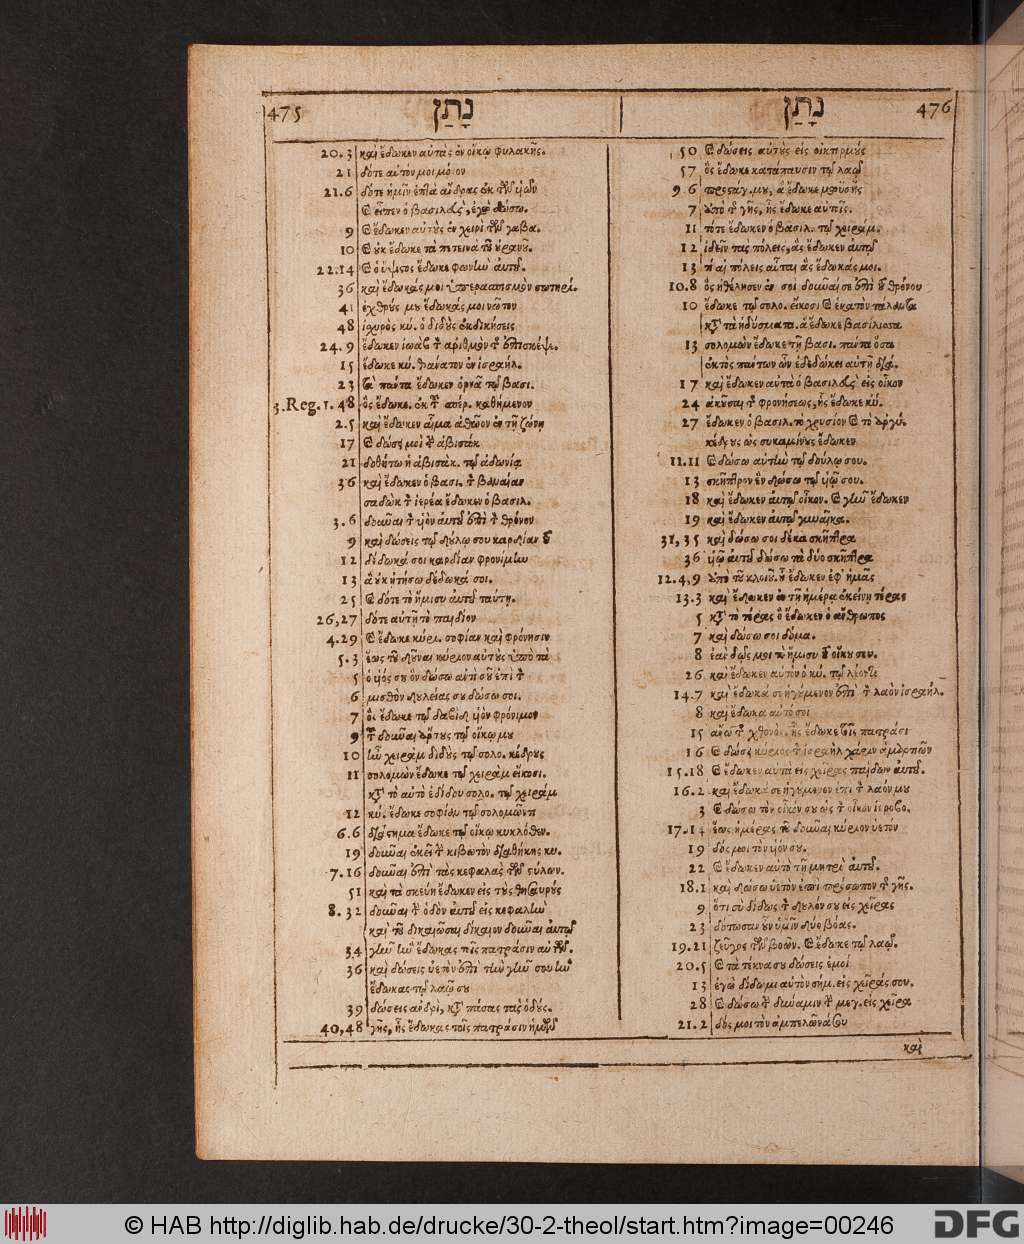 475 נָתַן
20.3 καὶ ἔδωκεν αὐτὰς ἐν οἴκῳ φυλακῆς.
21 δότε αὐτόν μοι μόνον
21.6 δότε ἡμῖν ἑπτὰ ἄνδρας ἐκ τῶν ὑῶν
ϗ εἶπεν ὁ βασιλεὺς, ἐγὼ δώσω.
9 ϗ ἔδωκεν αὐτοὺς ἐν χειρὶ τῶν γαβα.
10 ϗ οὐκ ἔδωκε τὰ πετεινὰ τοῦ οὐρανοῦ.
22.14 ϗ ὁ ὕψιστος ἔδωκε φωνὴν αὐτοῦ.
36 καὶ ἔδωκάς μοι ὑπερασπισμὸν σωτηρί.
41 ἐχθρούς μου ἔδωκάς μοι νῶτον
48 ἰσχυρὸς κύ. ὁ διδοὺς ἐκδικήσεις
24.9 ἔδωκεν ἰωὰβ τὸν ἀριθμὸν τῆς ἐπισκέψε.
15 ἔδωκε κύ. θάνατον ἐν ἰσραήλ.
23 τὰ πάντα ἔδωκεν ὀρνᾶ τῷ βασι.
3.Reg.1.48 ὃς ἔδωκε. ἐκ τοῦ σπέρ. καθήμενον
2.5 καὶ ἔδωκεν αἷμα ἀθῶον ἐν τῇ ζώνῃ
17 ϗ δώσει μοὶ τὴν ἀβισὰκ
21 δοθήτω ἡ ἀβισὰκ. τῷ ἀδωνίᾳ
36 καὶ ἔδωκεν ὁ βασι. τὸν βαναίαν
σαδὼκ τὸν ἱερέα ἔδωκεν ὁ βασιλ.
3.6 δοῦναι τὸν ὑὸν αὐτοῦ ἐπὶ τὸν θρόνον
9 καὶ δώσεις τῷ δούλῳ σου καρδίαν τοῦ
12 δέδωκά σοι καρδίαν φρονίμην
13 ἃ οὐκ ᾐτήσω δέδωκά σοι.
25 ϗ δότε τὸ ἥμισυ αὐτοῦ ταύτῃ.
26,27 δότε αὐτῇ τὸ παιδίον
4.29 ϗ ἔδωκε κύρι. σοφίαν καὶ φρόνησιν
5.3 ἕως τοῦ δοῦναι κύριον αὐτοὺς ὑπὸ τὰ
5 ὁ ὑός σου ὃν δώσω ἀντὶ σοῦ ἐπὶ τὸν
6 μισθὸν δουλείας σου δώσω σοι.
7 ὃς ἔδωκε τῷ δαβὶδ ὑὸν φρόνιμον
9 τοῦ δοῦναι ἄρτους τῷ οἴκῳ μου
10 ἦν χειρὰμ διδοὺς τῷ σολο. κέδρους
11 σολομὼν ἔδωκε τῷ χειρὰμ εἴκοσι.
κατὰ τὸ αὐτὸ ἐδίδου σολο. τῷ χειρὰμ
12 κύ. ἔδωκε σοφίαν τῷ σολομῶντι
6.6 διάστημα ἔδωκε τῷ οἴκῳ κυκλόθεν.
19 δοῦναι ἐκεῖ τὴν κιβωτὸν διαθήκης κυ.
7.16 δοῦναι ἐπὶ τὰς κεφαλὰς τῶν στύλων.
51 καὶ τὰ σκεύη ἔδωκεν εἰς τοὺς θησαυροὺς
8.32 δοῦναι τὴν ὁδὸν αὐτοῦ εἰς κεφαλὴν
καὶ τοῦ δικαιῶσαι δίκαιον δοῦναι αὐτῷ
34 γῆν ἣν ἔδωκας τοῖς πατράσιν αὐτῶν.
36 καὶ δώσεις ὑετὸν ἐπὶ τὴν γῆν σου ἣν
ἔδωκας τῷ λαῷ σου
39 δώσεις ἀνδρὶ, κατὰ πάσας τὰς ὁδούς.
40,48 γῆς, ἧς ἔδωκας τοῖς πατράσιν ἡμῶν
נָתַן 476
50 ϗ δώσεις αὐτοὺς εἰς οἰκτιρμοὺς
57 ὃς ἔδωκε κατάπαυσιν τῷ λαῷ
9 6 προστάγ. μου, ἃ ἔδωκε μωυσῆς
7 ἀπὸ τῆς γῆς, ἧς ἔδωκα αὐτοῖς.
11 τότε ἔδωκεν ὁ βασιλ. τῷ χειράμ.
12 ἰδεῖν τὰς πόλεις, ἃς ἔδωκεν αὐτῷ
13 τί αἱ πόλεις αὗται ἃς ἔδωκάς μοι.
10.8 ὃς ἠθέλησεν ἐν σοὶ δοῦναί σε ἐπὶ τοῦ θρόνου
10 ἔδωκε τῷ σολο. εἴκοσι ϗ ἑκατὸν τάλαντα
κατὰ τὰ ἡδύσματα. ἃ ἔδωκε βασίλισσα
13 σολομὼν ἔδωκε τῇ βασι. πάντα ὅσα
ἐκτὸς πάντων ὧν ἐδεδώκει αὐτῇ διά.
17 καὶ ἔδωκεν αὐτὰ ὁ βασιλεὺς εἰς οἶκον
24 ἀκοῦσαι τῆς φρονήσεως, ἧς ἔδωκε κύ.
27 ἔδωκεν ὁ βασιλ. τὸ χρυσίον ϗ τὸ ἀργύ.
κέδρους ὡς συκαμίνους ἔδωκεν
11.11 ϗ δώσω αὐτὴν τῷ δούλῳ σου.
13 σκῆπτρον ἓν δώσω τῷ ὑῷ σου.
18 καὶ ἔδωκεν αὐτῷ οἶκον. ϗ γῆν ἔδωκεν
19 καὶ ἔδωκεν αὐτῷ γυναῖκα.
31,35 καὶ δώσω σοι δέκα σκῆπτρα
36 ὑῷ αὐτοῦ δώσω τὰ δύο σκῆπτρα
12.4,9 ἀπὸ τοῦ κλοιοῦ. οὗ ἔδωκεν ἐφ' ἡμᾶς
13.3 καὶ ἔδωκεν ἐν τῇ ἡμέρᾳ ἐκείνῃ τέρας
5 κατὰ τὸ τέρας ὃ ἔδωκεν ὁ ἄνθρωπος
7 καὶ δώσω σοι δόμα.
8 ἐάν δῷς μοι τὸ ἥμισυ τοῦ οἴκου σου.
26 καὶ ἔδωκεν αὐτὸν ὁ κύ. τῷ λέοντι
14.7 καὶ ἔδωκά σε ἡγούμενον ἐπὶ τὸν λαὸν ἰσραήλ.
8 καὶ ἔδωκα αὐτό σοι
15 ἄνω τῆς χθονὸς. ἧς ἔδωκε τοῖς πατράσι
16 ϗ δώσει κύριος τὸν ἰσραὴλ χάριν ἁμαρτιῶν
15.18 ϗ ἔδωκεν αὐτὰ εἰς χεῖρας παίδων αὐτοῦ.
16.2 καὶ ἔδωκά σε ἡγούμενον ἐπὶ τὸν λαόν μου
3 ϗ δώσω τὸν οἶκόν σου ὡς τὸν οἶκον ἱεροβο.
17.14 ἕως ἡμέρας τοῦ δοῦναι κύριον ὑετόν
19 δός μοι τὸν ὑόν σου.
22 ϗ ἔδωκεν αὐτὸ τῇ μητρὶ αὐτοῦ.
18.1 καὶ δώσω ὑετὸν ἐπὶ πρόσωπον τῆς γῆς.
9 ὅτι σὺ δίδως τὸν δοῦλόν σου εἰς χεῖρας
23 δότωσαν οὖν ἡμῖν δύο βόας.
19.21 ζεῦγος τῶν βοῶν. ϗ ἔδωκε τῷ λαῷ.
20.5 ϗ τὰ τέκνα σου δώσεις ἐμοί
13 ἐγὼ δίδωμι αὐτὸν σήμ. εἰς χεῖράς σου.
28 ϗ δώσω τὴν δύναμιν τὴν μεγ. εἰς χεῖρα
21.2 δός μοι τὸν ἀμπελῶνά σου
καὶ
© HAB http://diglib.hab.de/drucke/30-2-theol/start.htm?image=00246
DFG